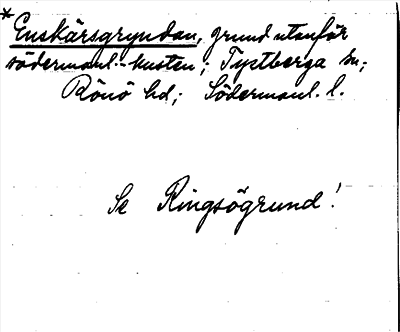 * Enskärsgryndan, grund utanför
södermanl.-kusten; Tystberga sn;
Rönö hd; Södermanl. l.
Se Ringsögrund!